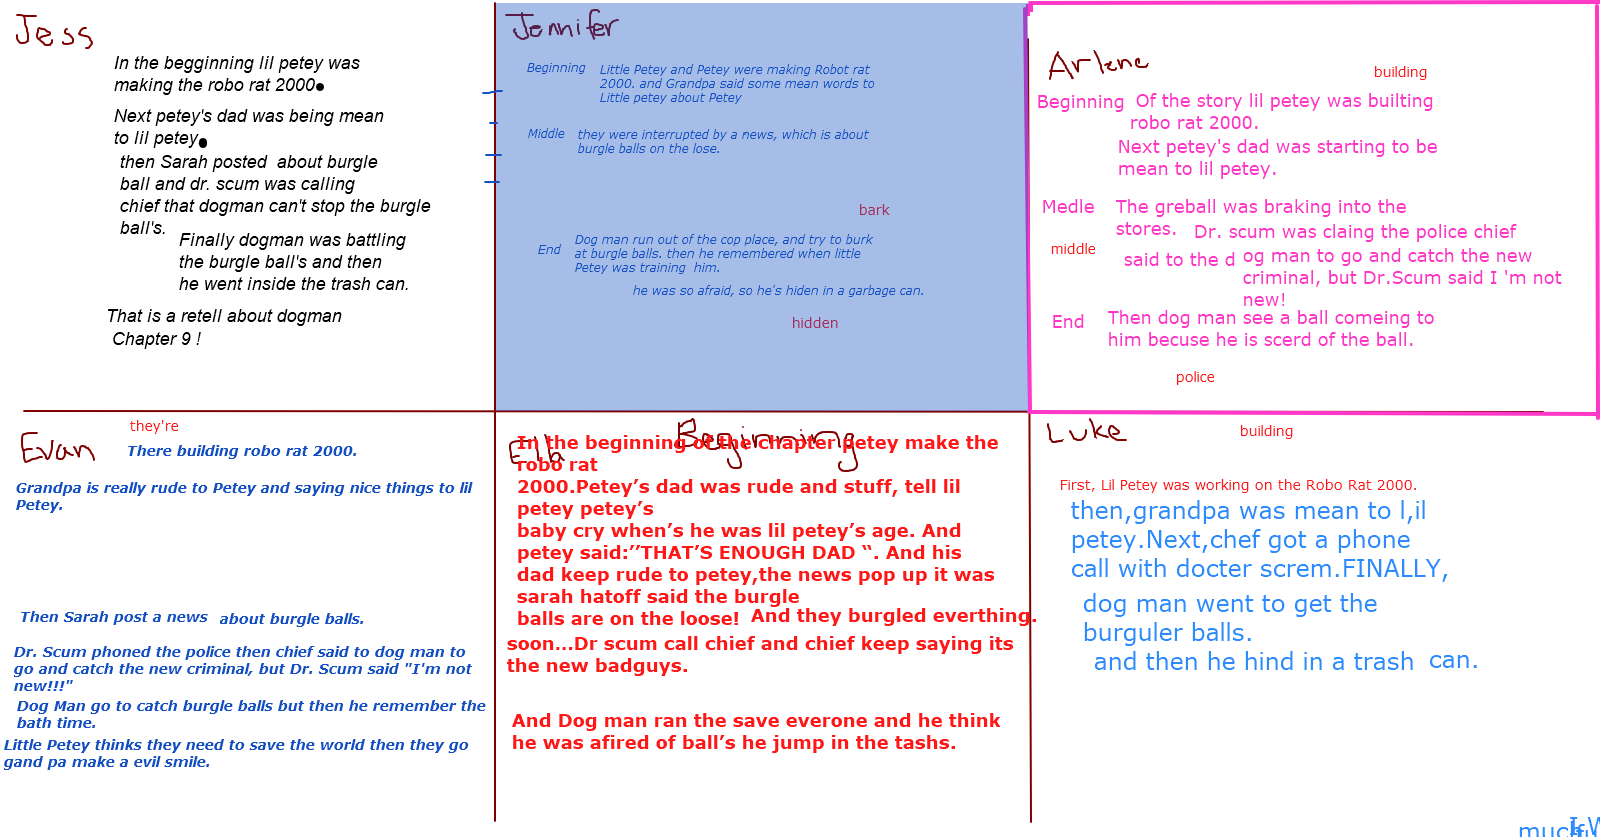 Jess
In the begginning lil petey was
making the robo rat 2000.
Next petey's dad was being mean
to lil petey.
then Sarah posted about burgle
ball and dr. scum was calling
chief that dogman can't stop the burgle
ball's.
Finally dogman was battling
the burgle ball's and then
he went inside the trash can.
That is a retell about dogman
Chapter 9 !
Jennifer
Beginning Little Petey and Petey were making Robot rat
2000. and Grandpa said some mean words to
Little petey about Petey
Middle they were interrupted by a news, which is about
burgle balls on the lose.
bark
End Dog man run out of the cop place, and try to burk
at burgle balls. then he remembered when little
Petey was training him.
he was so afraid, so he's hiden in a garbage can.
hidden
Arlene
building
Beginning Of the story lil petey was builting
robo rat 2000.
Next petey's dad was starting to be
mean to lil petey.
Medle The greball was braking into the
stores. Dr. scum was claing the police chief
middle
said to the d og man to go and catch the new
criminal, but Dr.Scum said I 'm not
new!
End Then dog man see a ball comeing to
him becuse he is scerd of the ball.
police
Evan
they're
There building robo rat 2000.
Grandpa is really rude to Petey and saying nice things to lil
Petey.
Then Sarah post a news about burgle balls.
Dr. Scum phoned the police then chief said to dog man to
go and catch the new criminal, but Dr. Scum said "I'm not
new!!!"
Dog Man go to catch burgle balls but then he remember the
bath time.
Little Petey thinks they need to save the world then they go
gand pa make a evil smile.
Ella
Beginning
In the beginning of the chapter petey make the
robo rat
2000.Petey’s dad was rude and stuff, tell lil
petey petey’s
baby cry when’s he was lil petey’s age. And
petey said:’’THAT’S ENOUGH DAD “. And his
dad keep rude to petey,the news pop up it was
sarah hatoff said the burgle
balls are on the loose! And they burgled everthing.
soon...Dr scum call chief and chief keep saying its
the new badguys.
And Dog man ran the save everone and he think
he was afired of ball’s he jump in the tashs.
Luke
building
First, Lil Petey was working on the Robo Rat 2000.
then,grandpa was mean to l,il
petey.Next,chef got a phone
call with docter screm.FINALLY,
dog man went to get the
burguler balls.
and then he hind in a trash can.